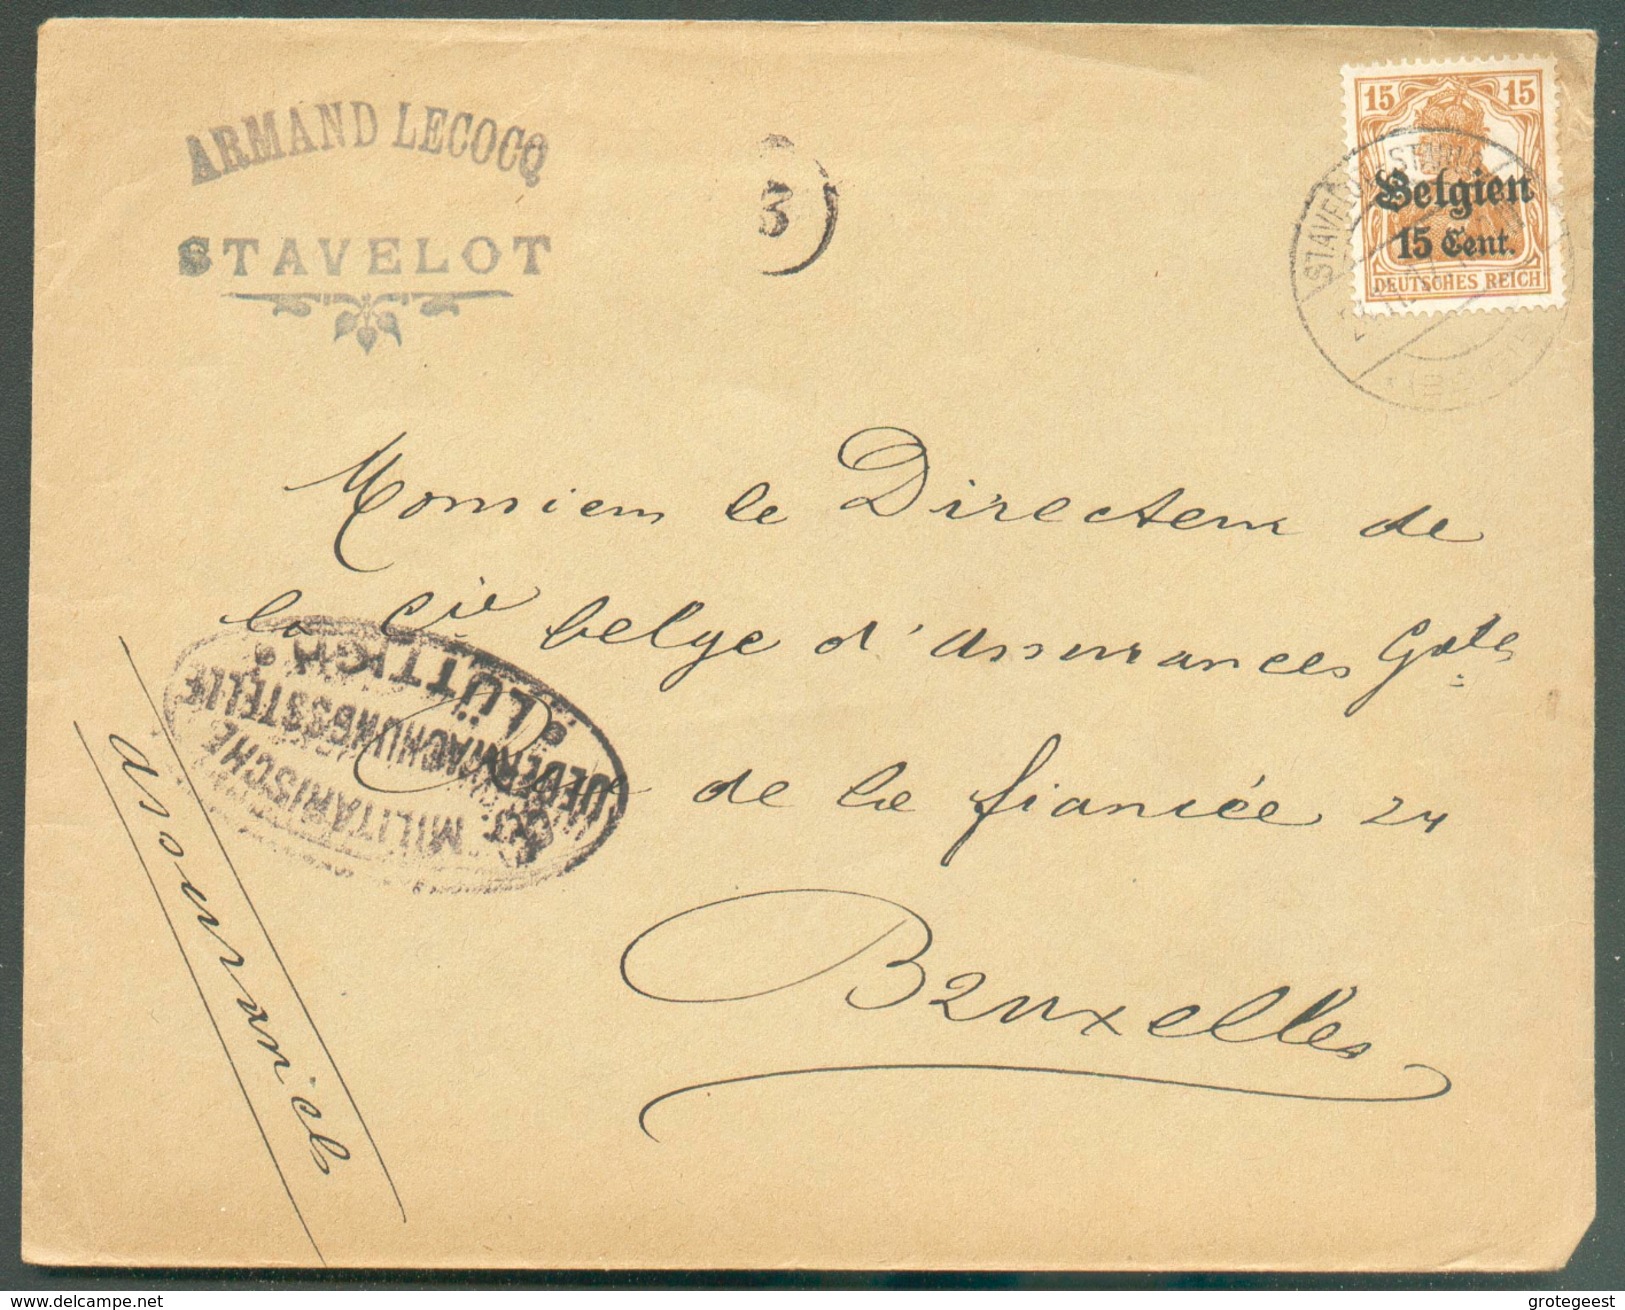 ARMAND LECOCQ
STAVELOT
3
15 15
Belgien
15 Cent.
DEUTSCHES REICH
STAVELOT
Monsieur le Directeur de
la Cie belge d'assurances Gales
R de la fiancée 24
Bruxelles
assurances
MILITÄRISCHE
UEBERWACHUNGSSTELLE
LÜTTICH
http://www.delcampe.net
grotegeest